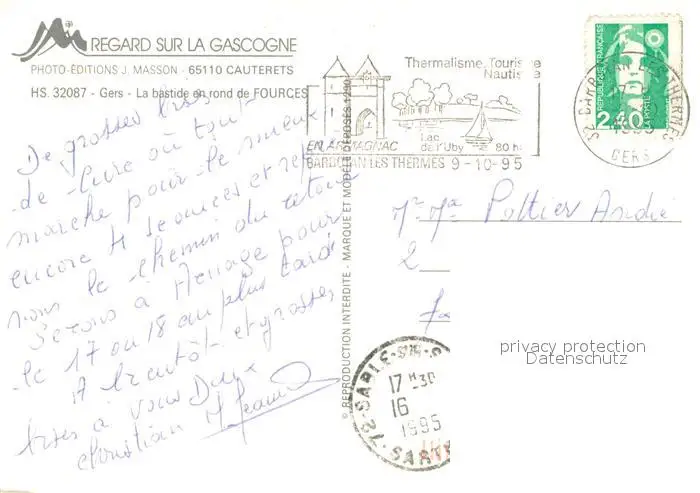 REGARD SUR LA GASCOGNE
PHOTO-ÉDITIONS J. MASSON - 65110 CAUTERETS
HS. 32087 - Gers - La bastide en rond de FOURCES
De grosses bises
de cure où tout
marche pour le mieux
encore 4 séances et
nous le chemin du retour
Serons à Menage pour
le 17 ou 18 au plus tard
A bientôt et grosses
bises à vous Deux
Christian
© REPRODUCTION INTERDITE - MARQUE ET MODÈLE DÉPOSÉS
Thermalisme, Tourisme
Nautisme
EN ARMAGNAC
Lac
de l'Uby
80 ha
BARBOTAN LES THERMES 9-10-95
RÉPUBLIQUE FRANÇAISE
LA POSTE
2,40
32 BARBOTAN LES THERMES
GERS
Mr Me Pottier André
2
72 SABLE-SUR-S
17 H-30
16
1995
SARTHE
privacy protection
Datenschutz